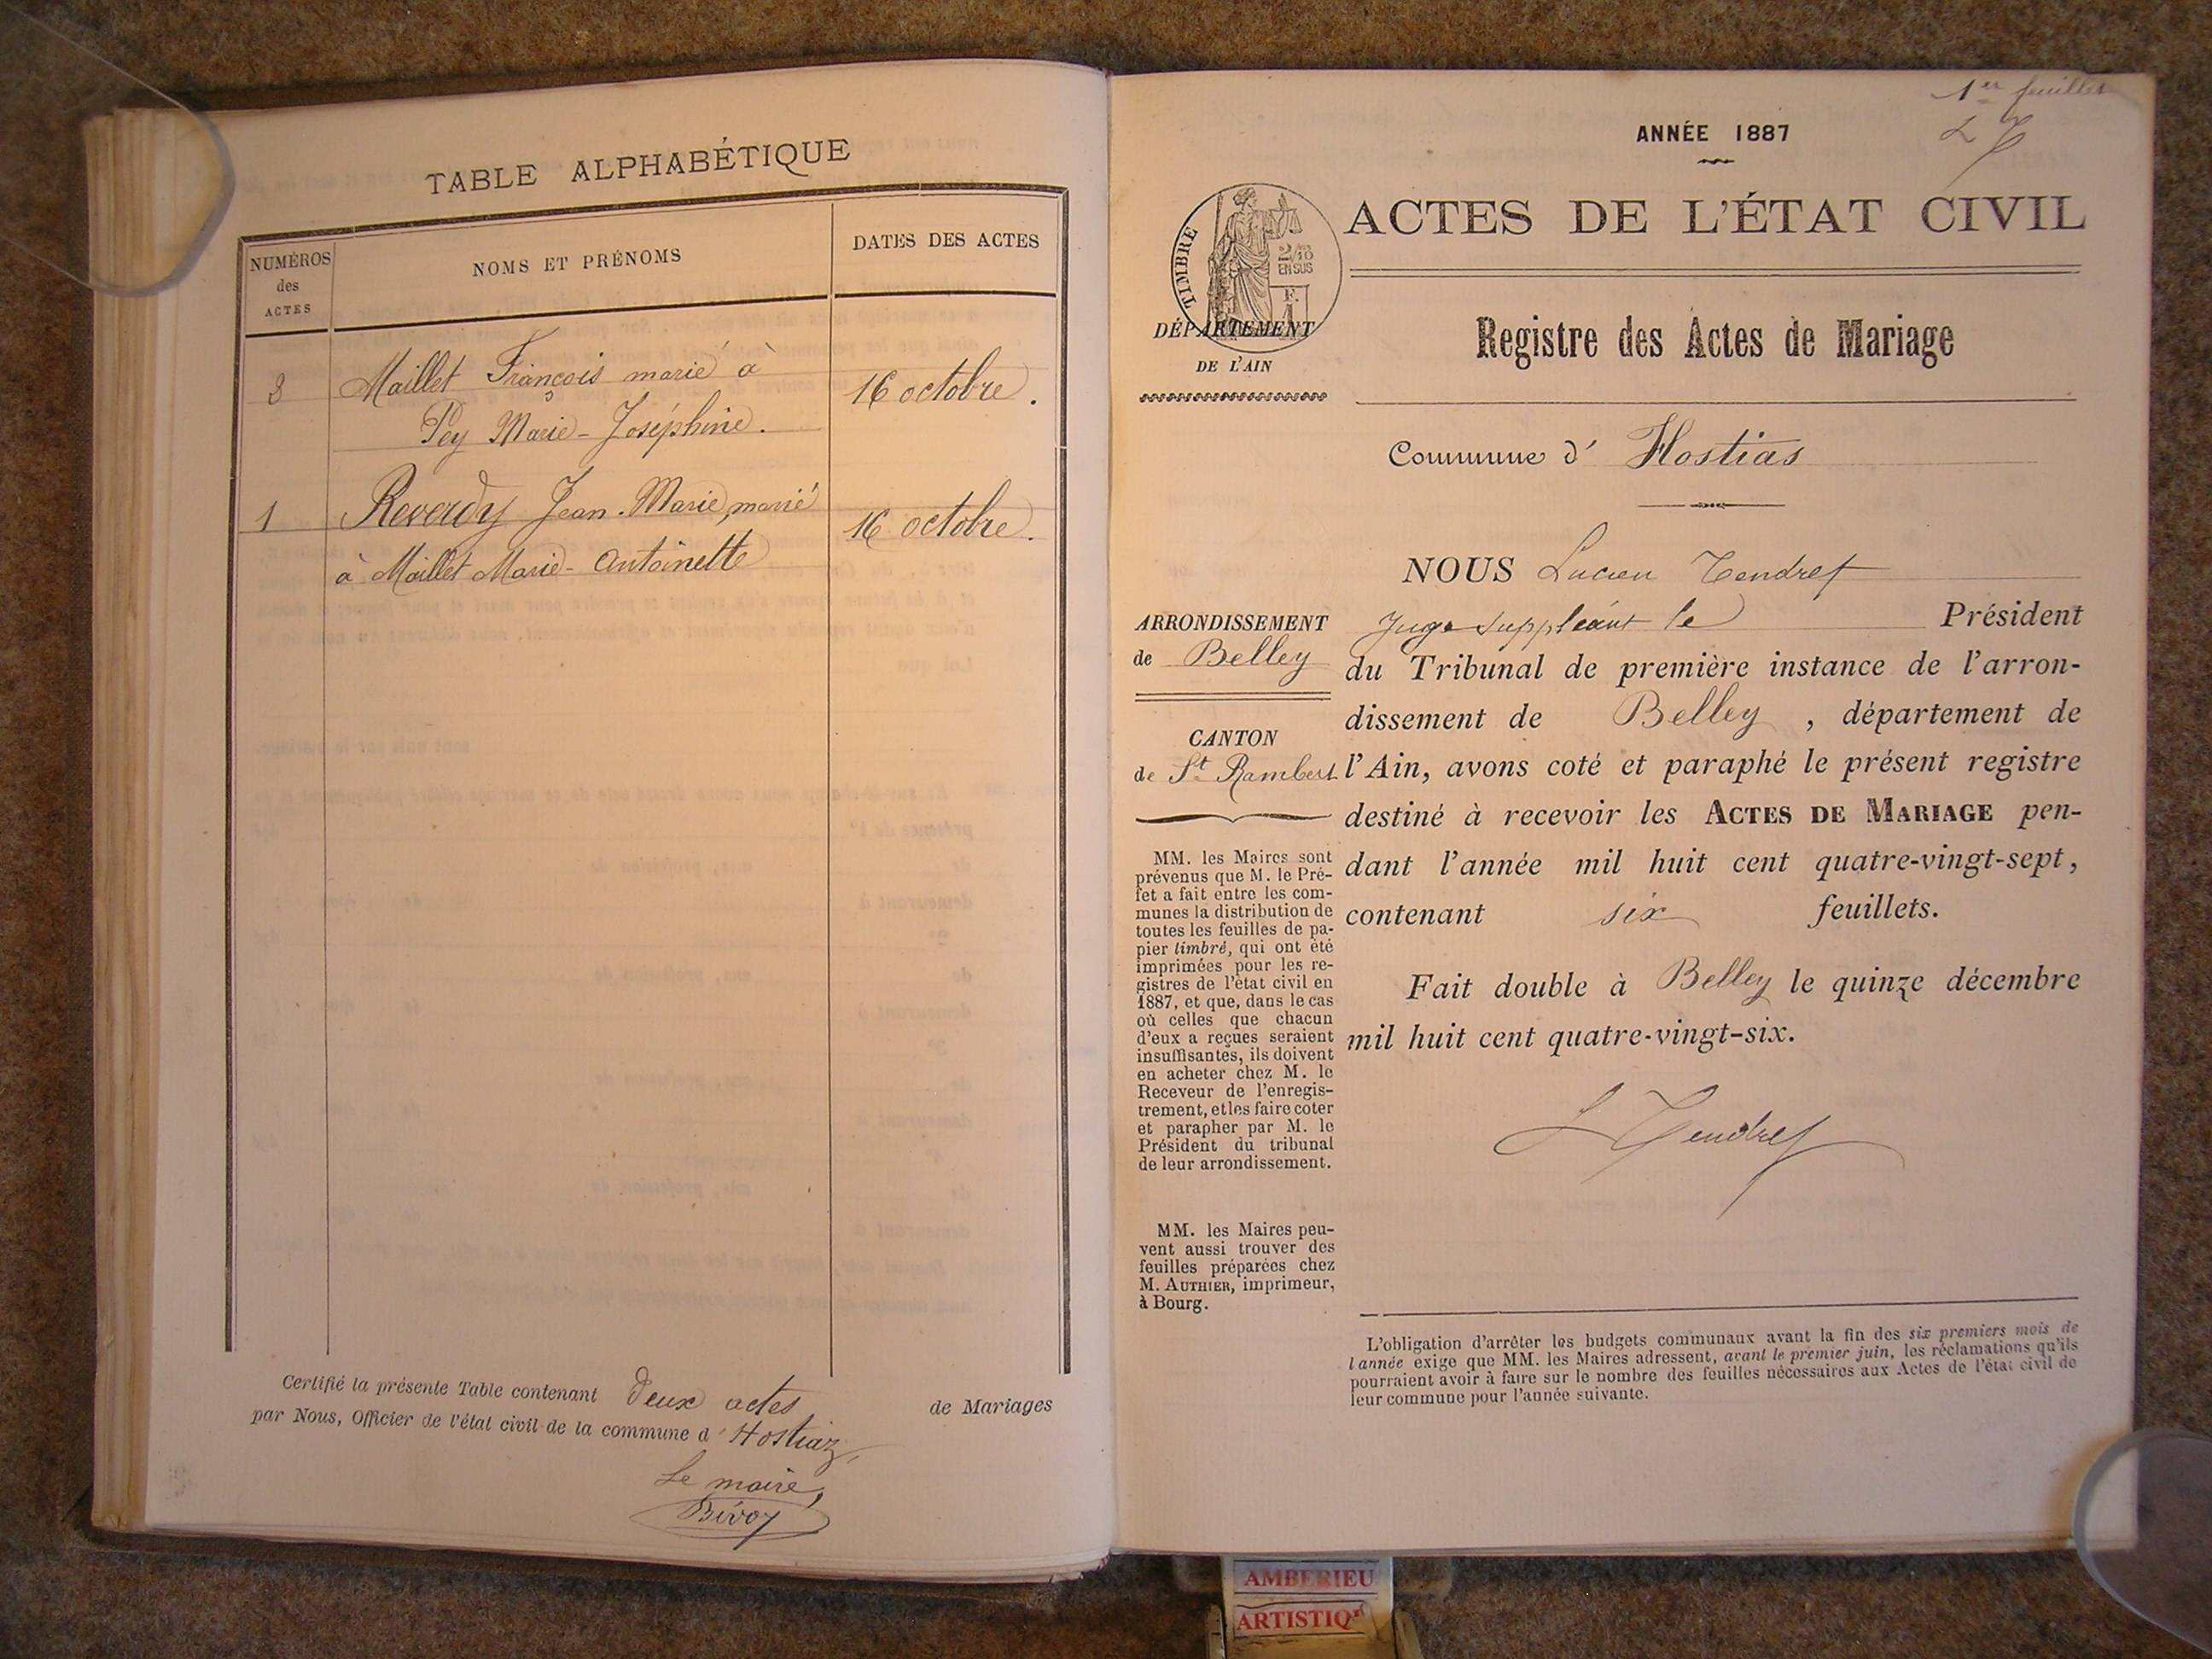 TABLE ALPHABÉTIQUE
NUMÉROS
des
ACTES
NOMS ET PRÉNOMS
DATES DES ACTES
3 Maillet François marié à 16 octobre.
Pey Marie-Joséphine.
1 Reverdy Jean-Marie, marié 16 octobre.
à Maillet Marie-Antoinette
Certifié la présente Table contenant deux actes de Mariages
par Nous, Officier de l'état civil de la commune d'Hostiaz,
Le maire,
Bévoz
1er feuillet
ANNÉE 1887
ACTES DE L'ÉTAT CIVIL
TIMBRE
2/10
EN SUS
F.
1
DÉPARTEMENT
DE L'AIN
Registre des Actes de Mariage
Commune d' Hostias
NOUS Lucien Tendret
Juge suppléant le Président
du Tribunal de première instance de l'arron-
dissement de Belley, département de
l'Ain, avons coté et paraphé le présent registre
destiné à recevoir les ACTES DE MARIAGE pen-
dant l'année mil huit cent quatre-vingt-sept,
contenant six feuillets.
Fait double à Belley le quinze décembre
mil huit cent quatre-vingt-six.
L Tendret
ARRONDISSEMENT
de Belley
CANTON
de St Rambert
MM. les Maires sont
prévenus que M. le Pré-
fet a fait entre les com-
munes la distribution de
toutes les feuilles de pa-
pier timbré, qui ont été
imprimées pour les re-
gistres de l'état civil en
1887, et que, dans le cas
où celles que chacun
d'eux a reçues seraient
insuffisantes, ils doivent
en acheter chez M. le
Receveur de l'enregis-
trement, et les faire coter
et parapher par M. le
Président du tribunal
de leur arrondissement.
MM. les Maires peu-
vent aussi trouver des
feuilles préparées chez
M. AUTHIER, imprimeur,
à Bourg.
L'obligation d'arrêter les budgets communaux avant la fin des six premiers mois de
l'année exige que MM. les Maires adressent, avant le premier juin, les réclamations qu'ils
pourraient avoir à faire sur le nombre des feuilles nécessaires aux Actes de l'état civil de
leur commune pour l'année suivante.
AMBERIEU
ARTISTIQ